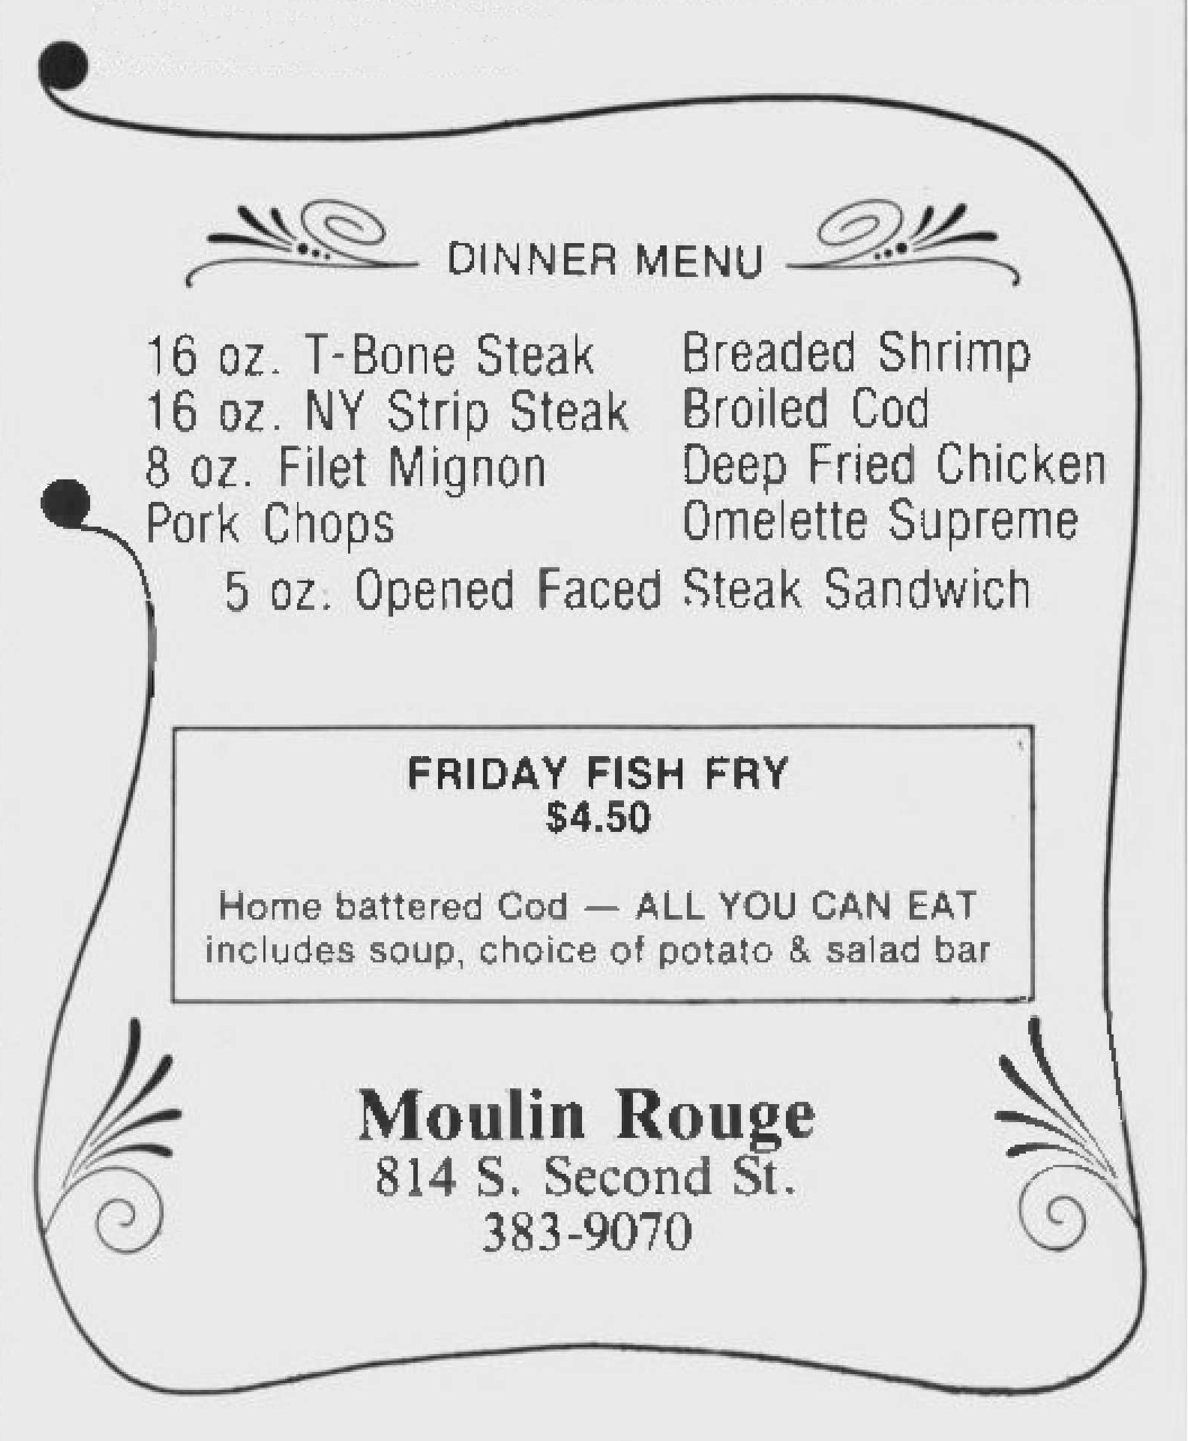 DINNER MENU
16 oz. T-Bone Steak
16 oz. NY Strip Steak
8 oz. Filet Mignon
Pork Chops
Breaded Shrimp
Broiled Cod
Deep Fried Chicken
Omelette Supreme
5 oz. Opened Faced Steak Sandwich
FRIDAY FISH FRY
$4.50
Home battered Cod — ALL YOU CAN EAT
includes soup, choice of potato & salad bar
Moulin Rouge
814 S. Second St.
383-9070